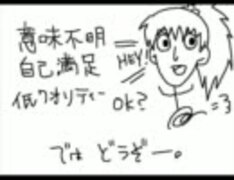 意味不明
自己満足
低クオリティー
HEY!
OK?
では どうぞー。